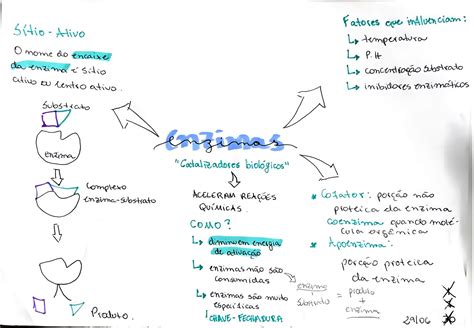 Sítio-Ativo
O nome do encaixe
da enzima é sítio
ativo ou centro ativo.
Substrato
enzima
Complexo
enzima-substrato
Produto.
enzimas
"Catalizadores biológicos"
ACELERAM REAÇÕES
QUÍMICAS.
COMO?
↳ diminuem energia
de ativação
↳ enzimas não são
consumidas
↳ enzimas são muito
específicas
↳ CHAVE-FECHADURA
enzima
substrato = produto
+
enzima
Fatores que influenciam:
↳ temperatura
↳ P.H
↳ concentração substrato
↳ inibidores enzimáticos
* Cofator: porção não
proteica da enzima
coenzima quando molé-
cula orgânica
* Apoenzima:
porção proteica
da enzima
29/06